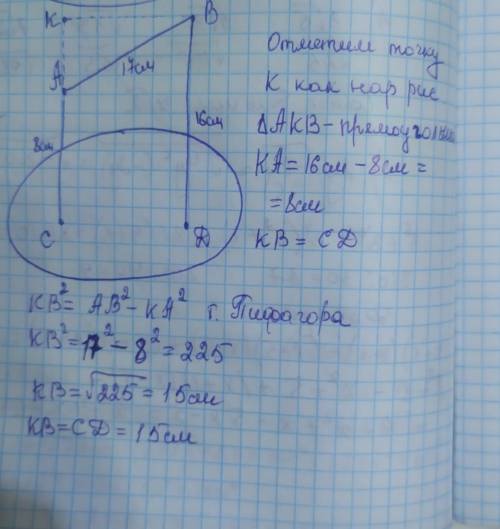 K
B
A
17см
8см
16см
C
D
Отметим точку
К как на рис
ΔAKB - прямоугольн
KA = 16см - 8см =
= 8см
KB = CD
KB² = AB² - KA² т. Пифагора
KB² = 17² - 8² = 225
KB = √225 = 15см
KB = CD = 15см